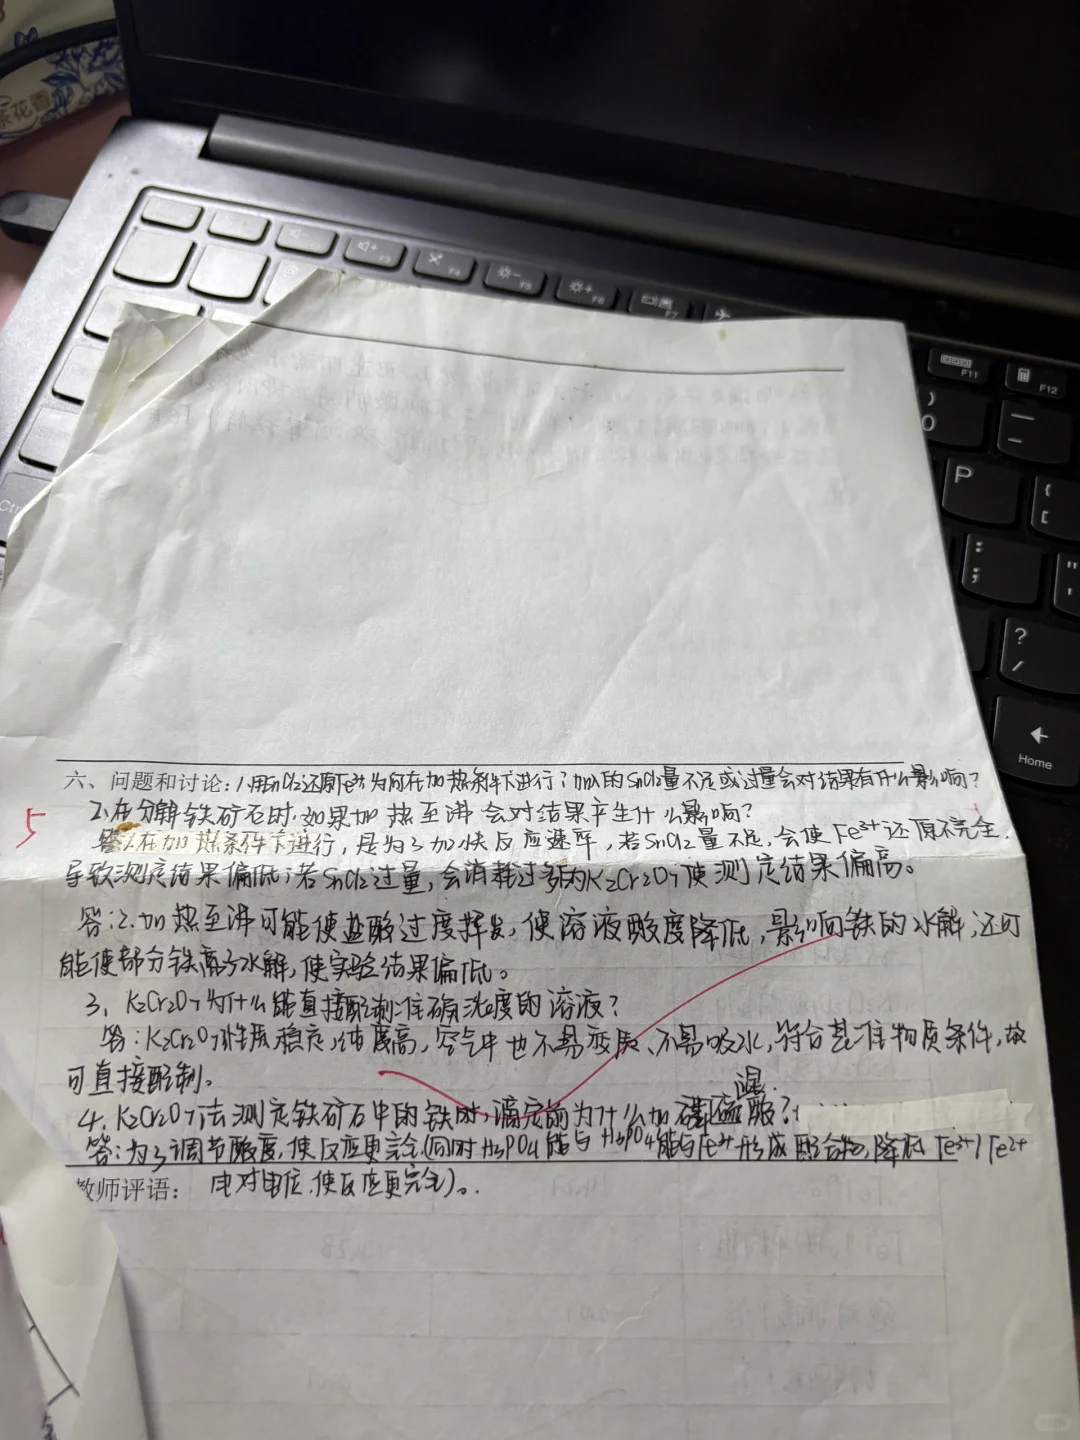 茶花香
F5
F6
F7
F11
F12
P
?
/
Home
Ctr
六、问题和讨论：1.用SnCl2还原Fe3+为何在加热条件下进行？加入的SnCl2量不足或过量会对结果有什么影响？
2.在分解铁矿石时，如果加热至沸会对结果产生什么影响？
5
答:1.在加热条件下进行，是为了加快反应速率，若SnCl2量不足，会使Fe3+还原不完全，
导致测定结果偏低；若SnCl2过量，会消耗过多的K2Cr2O7使测定结果偏高。
答:2.加热至沸可能使盐酸过度挥发，使溶液酸度降低，影响铁的水解，还可
能使部分铁离子水解，使实验结果偏低。
3、K2Cr2O7为什么能直接配制准确浓度的溶液？
答:K2Cr2O7性质稳定，纯度高，空气中也不易变质、不易吸水，符合基准物质条件，故
可直接配制。
混
4.K2Cr2O7法测定铁矿石中的铁时，滴定前为什么加硫磷酸？
答:为了调节酸度，使反应更完全(同时H3PO4能与H3PO4能与Fe3+形成配合物，降低Fe3+/Fe2+
教师评语： 电对电位，使反应更完全)。